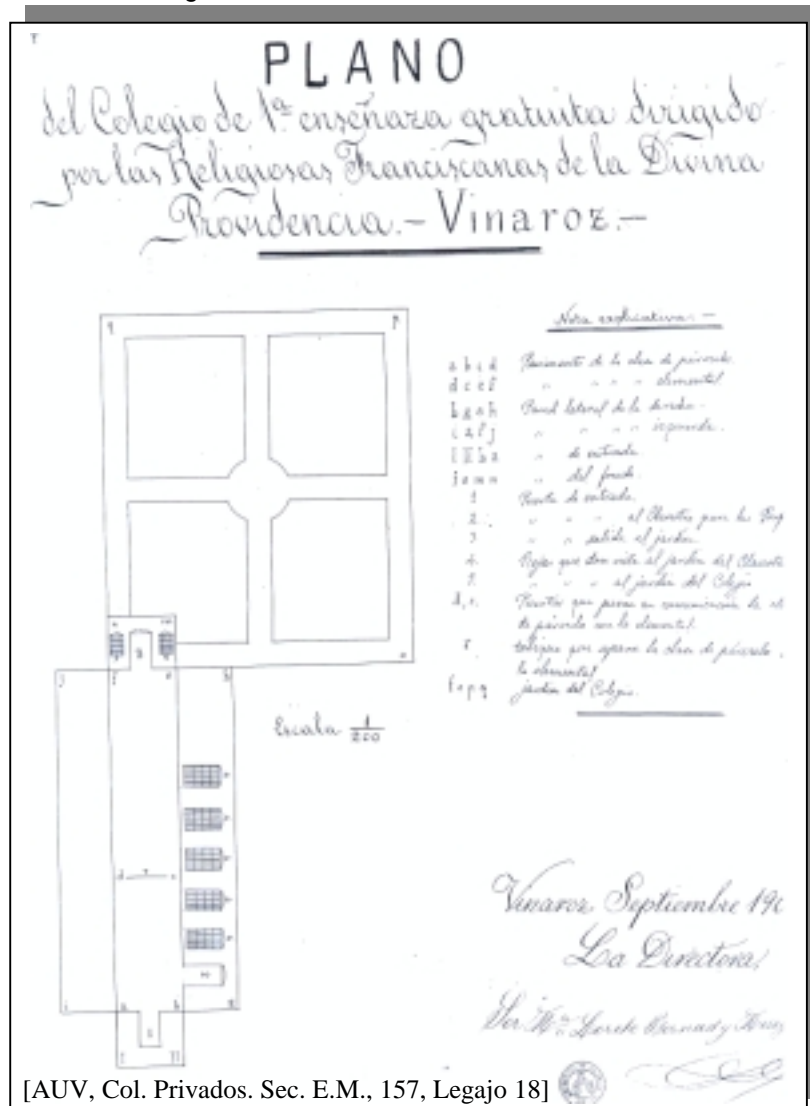 PLANO
del Colegio de 1ª enseñaza gratuita dirigido
por las Religiosas Franciscanas de la Divina
Providencia.- Vinaroz.-
Nota explicativa.-
a b c d Pavimento de la clase de párvulos.
d c e f " " " " elemental
b g e h Pared lateral de la derecha.
i a f j " " " " izquierda.
" de entrada
" del fondo.
1 Puerta de entrada.
2. " " " al Claustro para las
3 " " salida al jardín.
4. Rejas que dan vista al jardín del Claustro
5. " " " al jardín del Colegio
Puertas que ponen en comunicación la
de párvulos con la elemental.
r tabique que separa la clase de párvulos
la elemental
f o p q jardín del Colegio.
Escala 1/200
Vinaroz, Septiembre 190
La Directora,
Sor Mª Loreto Bernad y
[AUV, Col. Privados. Sec. E.M., 157, Legajo 18]